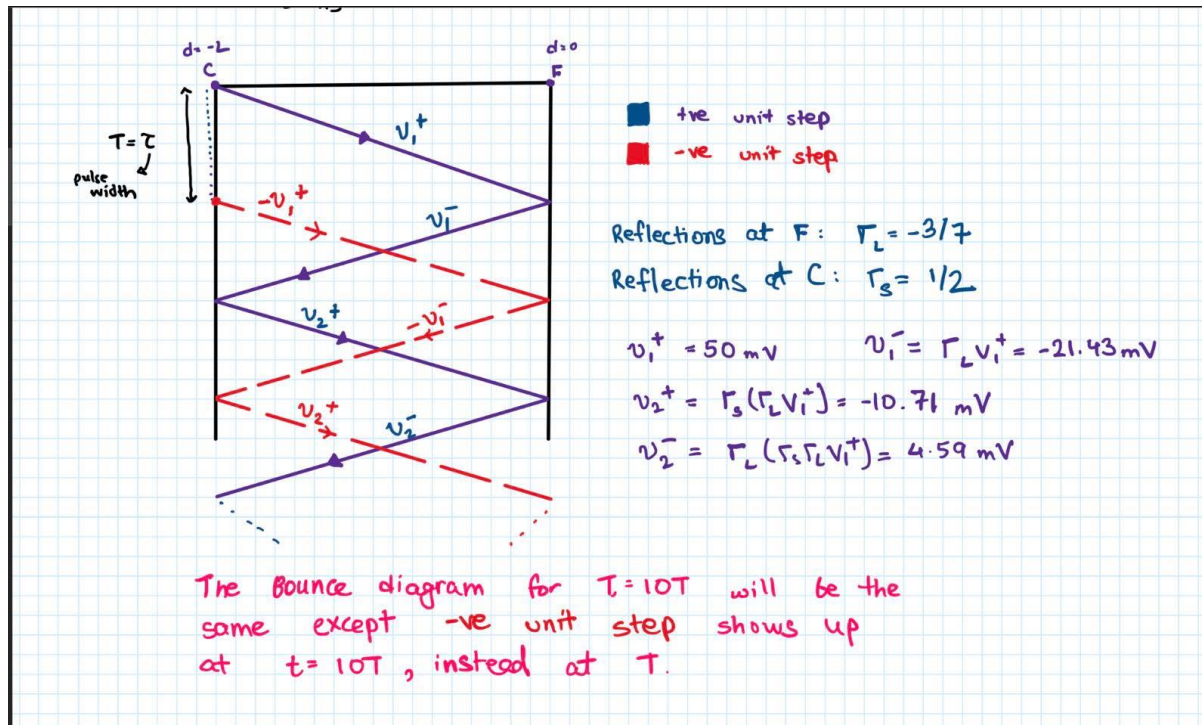 d=-L
d=0
C
F
T=τ
pulse
width
ν₁⁺
-ν₁⁺
ν₁⁻
ν₂⁺
-ν₁⁻
ν₂⁺
ν₂⁻
+ve unit step
-ve unit step
Reflections at F: Γ_L = -3/7
Reflections at C: Γ_S = 1/2
ν₁⁺ = 50 mV ν₁⁻ = Γ_L V₁⁺ = -21.43 mV
ν₂⁺ = Γ_S (Γ_L V₁⁺) = -10.71 mV
ν₂⁻ = Γ_L (Γ_S Γ_L V₁⁺) = 4.59 mV
The Bounce diagram for τ=10T will be the
same except -ve unit step shows up
at t=10T, instead at T.